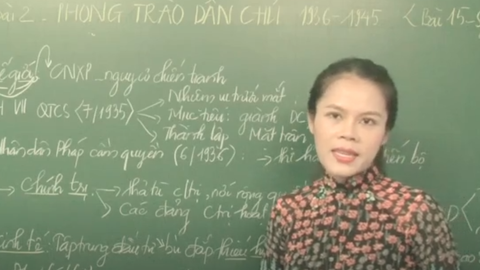 Bài 2. PHONG TRÀO DÂN CHỦ 1936-1945 (Bài 15-
thế giới CNXP - nguy cơ chiến tranh
ĐH VII QTCS (7/1935) Nhiệm vụ trước mắt
Mục tiêu: giành DC
Thành lập Mặt trận
Nhân dân Pháp cầm quyền (6/1936): → thi bộ
→ chính trị → thả tù ctrị, nới rộng qu
Các đảng ctrị hoạt
kinh tế: Tập trung đầu tư bù đắp